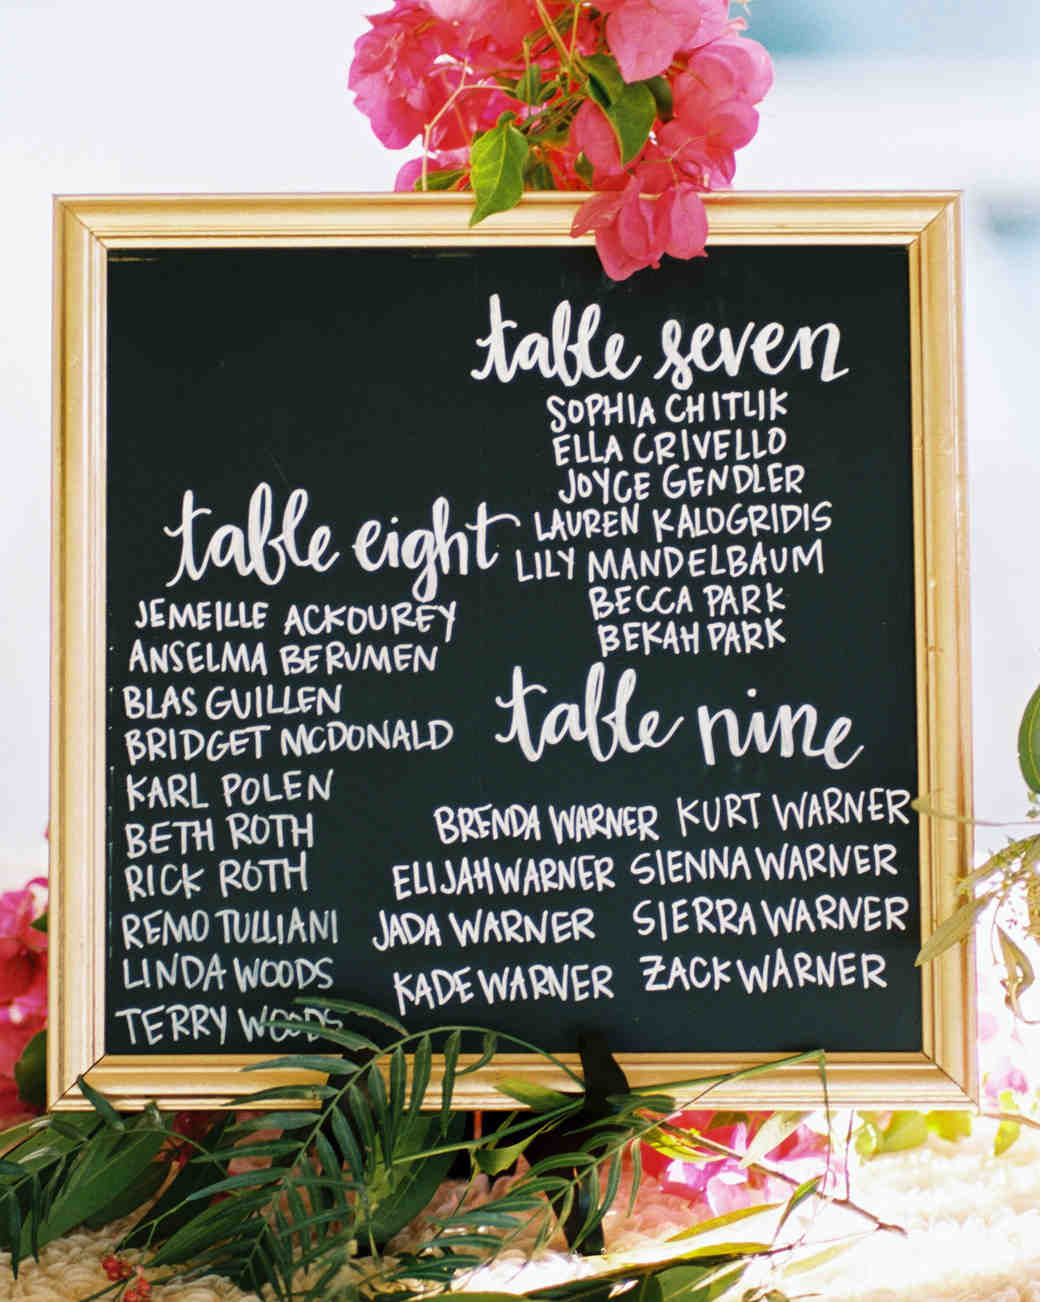 table seven
SOPHIA CHITLIK
ELLA CRIVELLO
JOYCE GENDLER
LAUREN KALOGRIDIS
LILY MANDELBAUM
BECCA PARK
BEKAH PARK
table eight
JEMEILLE ACKOUREY
ANSELMA BERUMEN
BLAS GUILLEN
BRIDGET MCDONALD
KARL POLEN
BETH ROTH
RICK ROTH
REMO TULLIANI
LINDA WOODS
TERRY WOODS
table nine
BRENDA WARNER KURT WARNER
ELIJAH WARNER SIENNA WARNER
JADA WARNER SIERRA WARNER
KADE WARNER ZACK WARNER